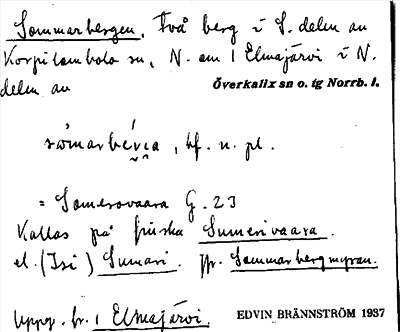 Sommarbergen, Två berg i S. delen av
Korpilombolo sn, N. om | Elmajärvi i N.
delen av Överkalix sn o. tg Norrb. l.
, bf. n. pl.
= Somerovaara G. 23
Kallas på finska Sumerivaara.
el. (Isi) Sumari. Jfr. Sommarbergmyran.
Uppg. fr. | Elmajärvi. EDVIN BRÄNNSTRÖM 1937